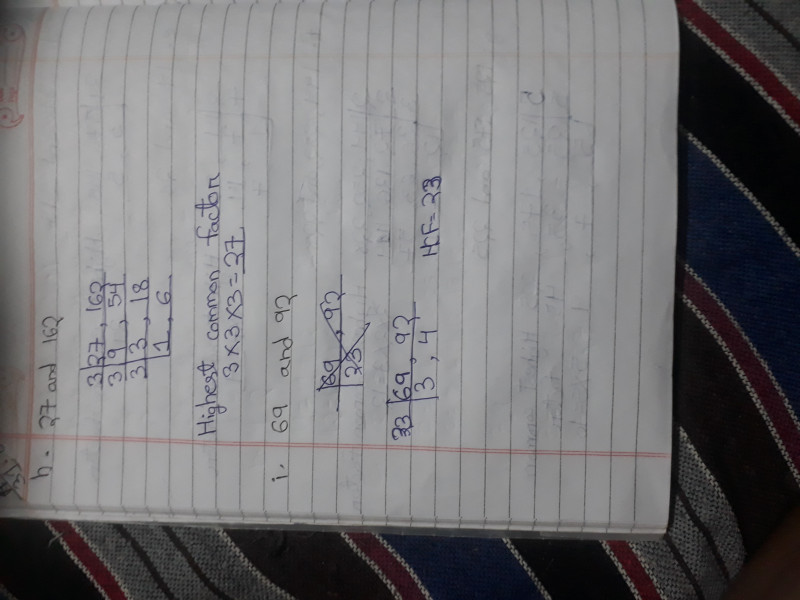 h. 27 and 162
3 27, 162
3 9, 54
3 3, 18
1, 6
Highest common factor
3 x 3 x 3 = 27
i. 69 and 92
69, 92
23
23 69, 92
3, 4 HCF = 23